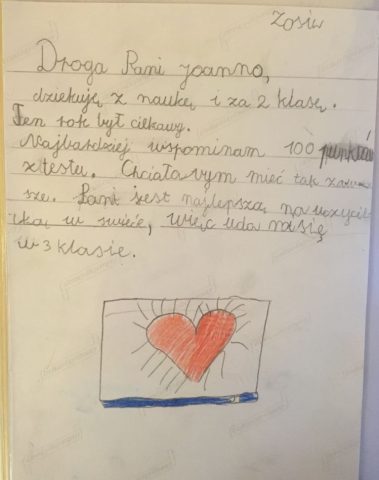 Zosia
Droga Pani Joanno,
dziękuję z naukę i za 2 klasę.
Ten rok był ciekawy.
Najbardziej wspominam 100 punktów
z testu. Chciała bym mieć tak zaw
sze. Pani jest najlepszą na uczycie
lką w świecie, więc uda mi się
w 3 klasie.